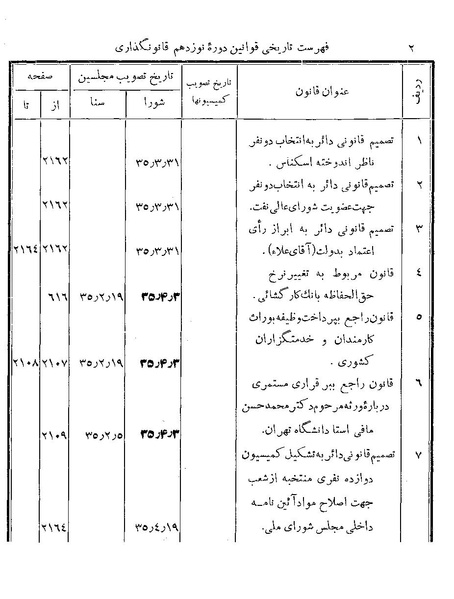 ۲ فهرست تاریخی قوانین دورهٔ نوزدهم قانونگذاری
ردیف عنوان قانون تاریخ تصویب کمیسیونها تاریخ تصویب مجلسین صفحه
شورا سنا از تا
۱ تصمیم قانونی دائر به انتخاب دو نفر
ناظر اندوخته اسکناس . ۳۵٫۳٫۳۱ ۲۱۶۲
۲ تصمیم قانونی دائر به انتخاب دو نفر
جهت عضویت شورای عالی نفت. ۳۵٫۳٫۳۱ ۲۱۶۲
۳ تصمیم قانونی دائر به ابراز رأی
اعتماد بدولت (آقای علاء). ۳۵٫۳٫۳۱ ۲۱۶۲ ۲۱۶٤
٤ قانون مربوط به تغییر نرخ
حق‌الحفاظه بانک کارگشائی. ۳۵٫۴٫۳ ۳۵٫۲٫۱۹ ۶۱۶
۵ قانون راجع بپرداخت وظیفه بوراث
کارمندان و خدمتگزاران
کشوری . ۳۵٫۴٫۳ ۳۵٫۲٫۱۹ ۲۱۰۷ ۲۱۰۸
۶ قانون راجع ببر قراری مستمری
درباره ورثه مرحوم دکتر محمدحسن
مافی استا دانشگاه تهران. ۳۵٫۴٫۳ ۳۵٫۲٫۵ ۲۱۰۹
۷ تصمیم قانونی دائر به تشکیل کمیسیون
دوازده نفری منتخبه از شعب
جهت اصلاح مواد آئین نامه
داخلی مجلس شورای ملی. ۳۵٫٤٫۱۹ ۲۱۶٤